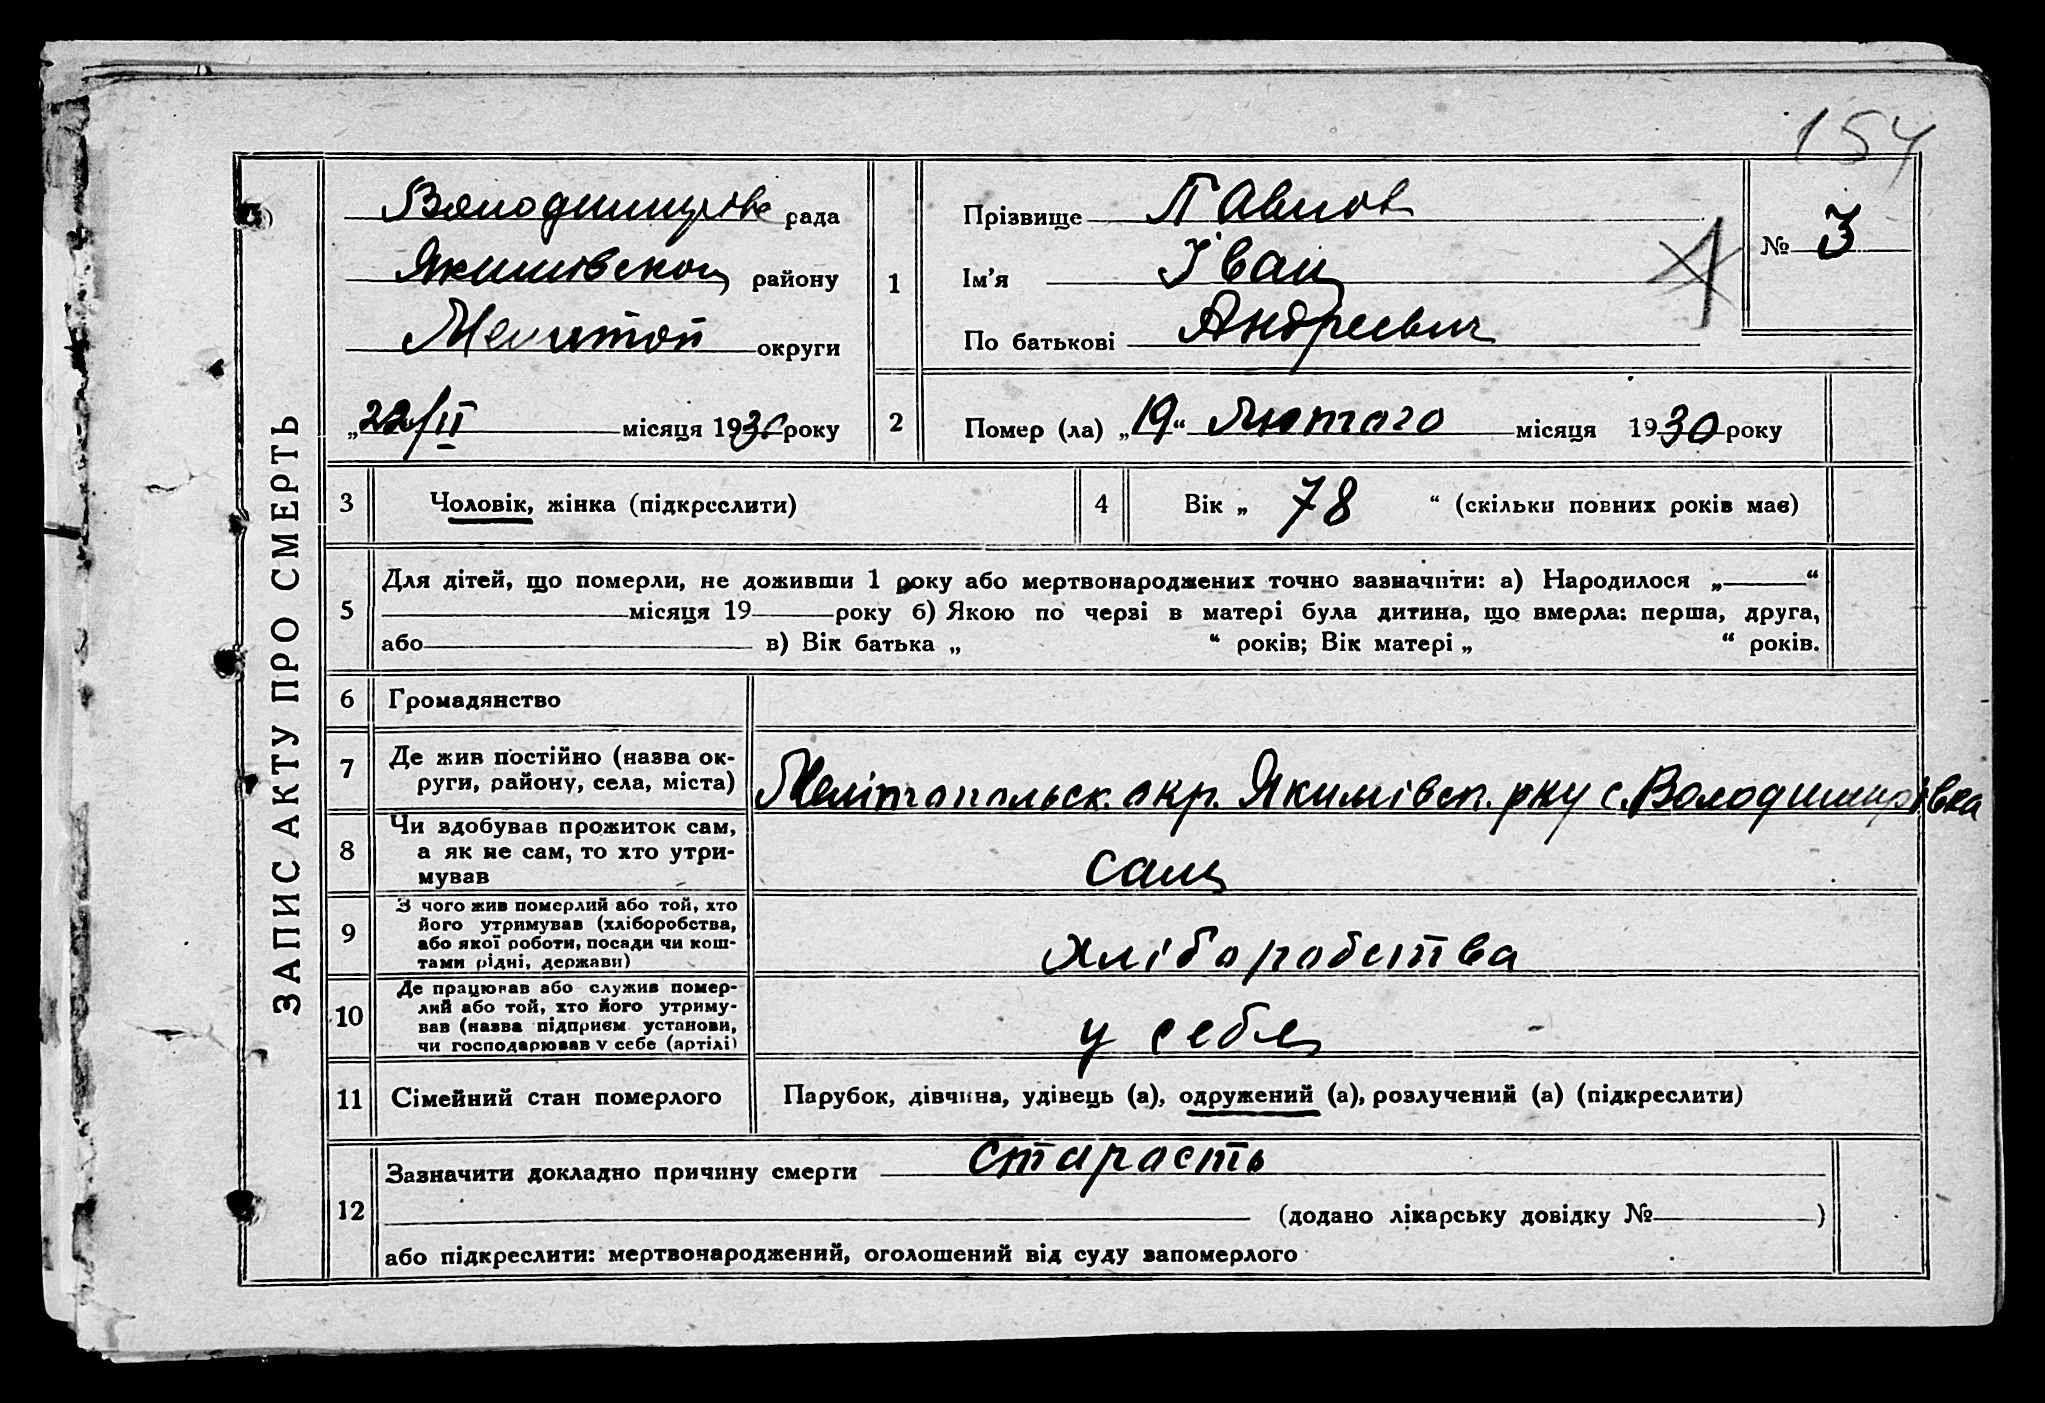 154
ЗАПИС АКТУ ПРО СМЕРТЬ
Володимирове рада
Якимовского району
Мелитоп округи
„22/II місяця 1930 року
1
Прізвище Павлов
Ім'я Іван
По батькові Андреевич
№ 3
2
Помер (ла) „19“ Лютого місяця 1930 року
3 Чоловік, жінка (підкреслити)
4 Вік „ 78 “ (скільки повних років має)
5
Для дітей, що померли, не доживши 1 року або мертвонароджених точно зазначити: а) Народилося „ “
місяця 19 року б) Якою по черзі в матері була дитина, що вмерла: перша, друга,
або в) Вік батька „ “ років; Вік матері „ “ років.
6 Громадянство
7 Де жив постійно (назва ок-
руги, району, села, міста)
Мелітопольск. окр. Якимівск. рну с. Володимирівка
8 Чи здобував прожиток сам,
а як не сам, то хто утри-
мував
сам
9 З чого жив померлий або той, хто
його утримував (хліборобства,
або якої роботи, посади чи кош-
тами рідні, держави)
хліборобства
10 Де працював або служив помер-
лий або той, хто його утриму-
вав (назва підприєм. установи,
чи господарював у себе (артілі)
у себе
11 Сімейний стан померлого
Парубок, дівчина, удівець (а), одружений (а), розлучений (а) (підкреслити)
12
Зазначити докладно причину смерти старасть
(додано лікарську довідку № )
або підкреслити: мертвонароджений, оголошений від суду запомерлого